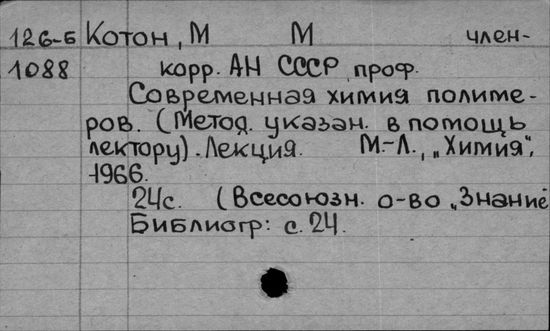 126-Б Котон, М М член-
1088 корр. АН СССР, проф.
Современная химия полиме-
ров. (Метод. указан. в помощь
лектору). Лекция. М.-Л., „Химия",
1966.
24с. (Всесоюзн. о-во „Знание"
Библиогр: с. 24.